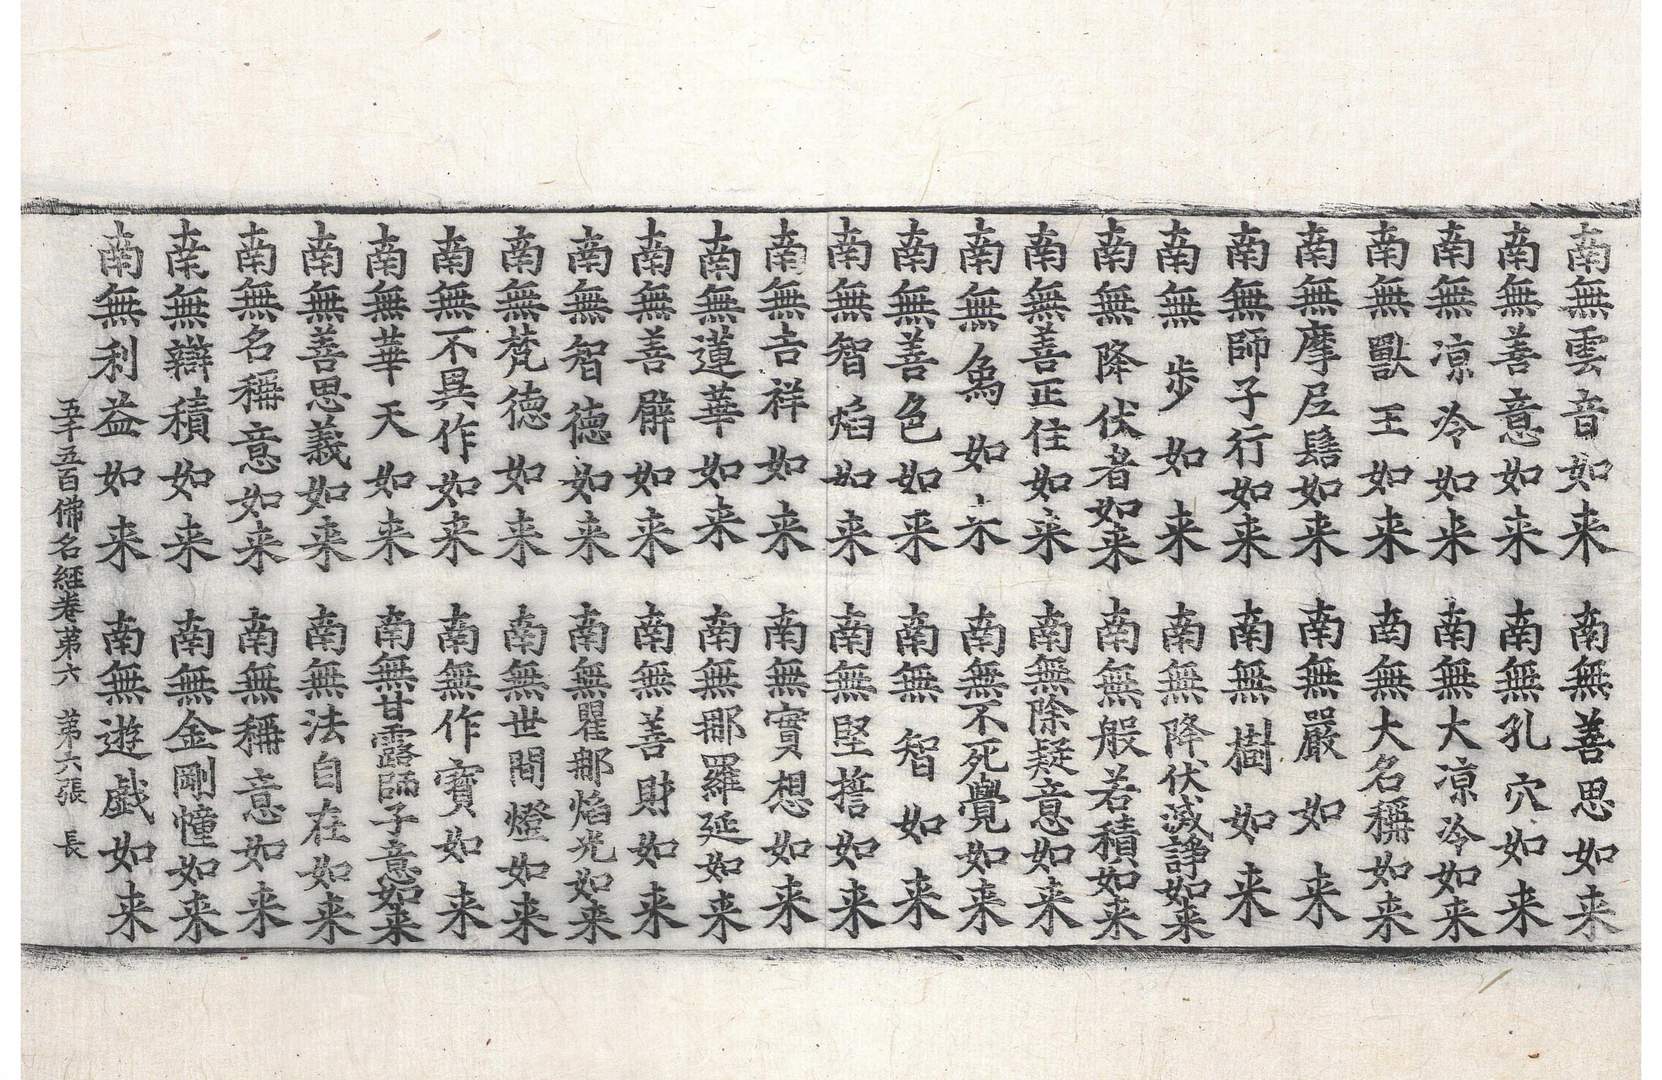 南無雲音如来 南無善思如来
南無善意如来 南無孔穴如来
南無凉冷如来 南無大凉冷如来
南無獸王如来 南無大名稱如来
南無摩尼髻如来 南無嚴如来
南無師子行如来 南無樹如来
南無步如来 南無降伏滅諍如来
南無降伏者如来 南無般若積如来
南無善正住如来 南無除疑意如来
南無為如 南無不死覺如来
南無善色如来 南無智如来
南無智焰如来 南無堅誓如来
南無吉祥如来 南無實想如来
南無蓮華如来 南無那羅延如来
南無善臂如来 南無善財如来
南無智德如来 南無瞿那焰光如来
南無梵德如来 南無世間燈如来
南無不異作如来 南無作寶如来
南無華天如来 南無甘露師子意如来
南無善思義如来 南無法自在如来
南無名稱意如来 南無稱意如来
南無辯積如来 南無金剛幢如来
南無利益如来 南無遊戲如来
五千五百佛名經卷第六 第六張 長